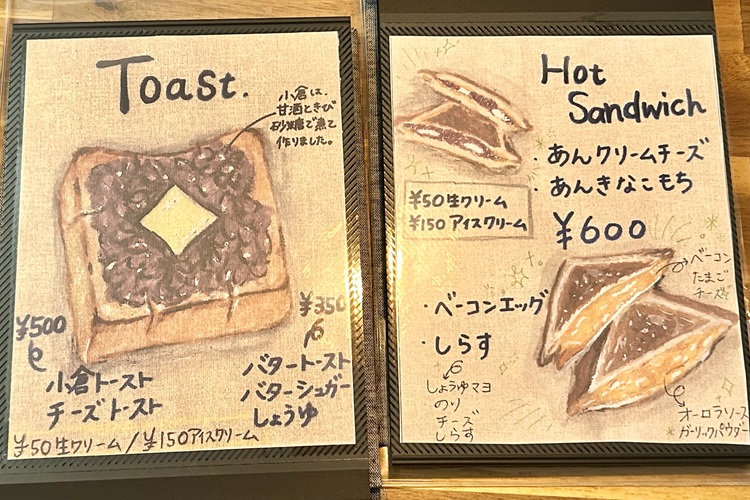 Toast.
小倉は、
甘酒ときび
砂糖で煮て
作りました。
¥500
小倉トースト
チーズトースト
¥350
バタートースト
バターシュガー
しょうゆ
¥50生クリーム/¥150アイスクリーム
Hot
Sandwich
・あんクリームチーズ
・あんきなこもち
¥600
¥50生クリーム
¥150アイスクリーム
・ベーコンエッグ
・しらす
しょうゆマヨ
のり
チーズ
しらす
ベーコン
たまご
チーズ
オーロラソース
ガーリックパウダー